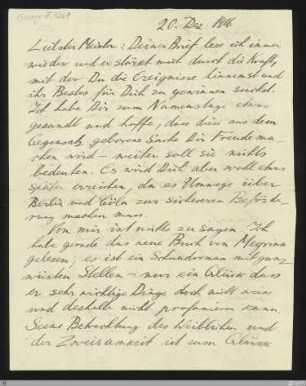 20. Dez. 1916
Liebster Meister: Deinen Brief lese ich immer
wieder und er stärkt mich durch die Kraft,
mit der Du die Ereignisse hinnimmst und
ihr Bestes für Dich zu gewinnen suchst.
Ich habe Dir zum Namenstage etwas
gesandt und hoffe, dass diese aus dem
Gegensatz geborene Sache Dir Freude ma-
chen wird – weiter soll sie nichts
bedeuten. Es wird Dich aber wohl etwas
später erreichen, da es Umwege über
Berlin und Cöln zur sicheren Beförde-
rung machen muss.
Von mir ist nichts zu sagen. Ich
habe gerade das neue Buch von Meyrink
gelesen, es ist ein Schundroman mit ganz
wüsten Stellen – nur ein Glück dass
er sehr wichtige Dinge doch nicht weiss
und deshalb nicht profanieren kann.
Seine Betrachtung des Weiblichen und
der Zweisamkeit ist zum Glück